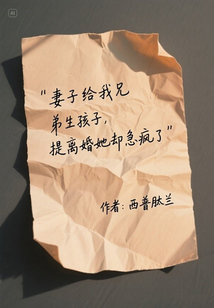 "妻子给我兄
弟生孩子,
提离婚她却急疯了"
作者:西普肽兰